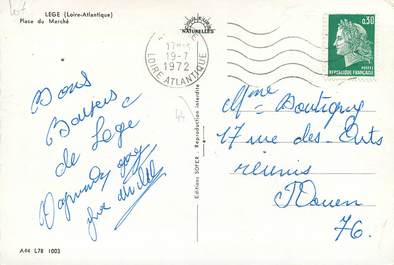 LEGE (Loire-Atlantique)
Place du Marché
NATURELLES
17H
19-7
1972
LOIRE ATLANTIQUE
0,30
POSTES
REPUBLIQUE FRANÇAISE
Bons
Baisers
de Lege
Editions SOFER - Reproduction interdite
Mme Boutigny
17 rue des Arts
reunis
Rouen
76.
A44 L78 1003